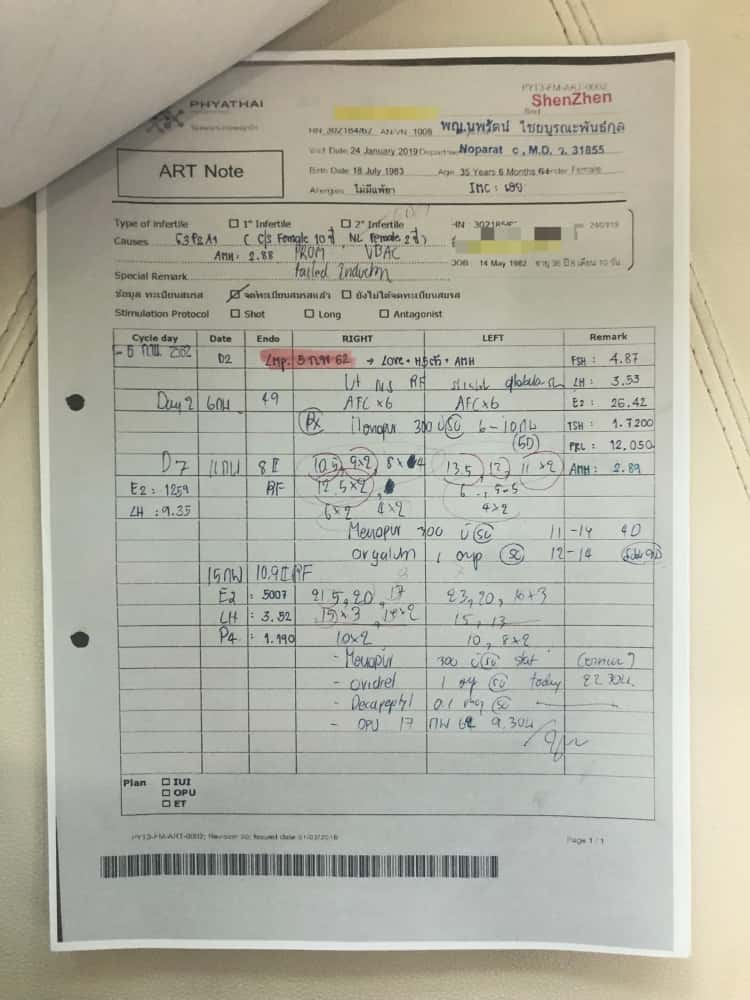 PY13-FM-ART-0002
PHYATHAI
ShenZhen
HN 302184267 AN/VN 1008 พญ.นพรัตน์ ไชยบูรณะพันธ์กุล
Visit Date 24 January 2019 Department Noparat c , M.D. ว. 31855
ART Note
Birth Date 18 July 1983 Age 35 Years 6 Months Gender Female
Allergies ไม่มีแพ้ยา
Type of Infertile ☐ 1° Infertile ☐ 2° Infertile
Causes G3P2A1 ( C/S Female 10 ปี , NL Female 2 ปี )
AMH : 2.88 PROM VBAC
DOB 14 May 1982 อายุ 36 ปี 8 เดือน 10 วัน
Special Remark failed Induction
ข้อมูล ทะเบียนสมรส ☑ จดทะเบียนสมรสแล้ว ☐ ยังไม่ได้จดทะเบียนสมรส
Stimulation Protocol ☐ Shot ☐ Long ☐ Antagonist
Cycle day Date Endo RIGHT LEFT Remark
D2 LMP. 5 กพ 62 FSH : 4.87
LH : 3.53
Day 2 6 กพ 49 AFC x 6 AFC x 6 E2 : 26.42
Menopur 300 U SC 6-10 กพ TSH : 1.7200
(5D) PRL : 12.050
D7 11 กพ 10.5, 9x2, 8x4 13.5, 12, 11 x2 AMH : 2.89
E2 : 1259 12.5x2 6 , 5.5
LH : 9.35 6x2 4x2 4x2
Menopur 300 U SC 11-14 4D
Orgalutran 1 amp. SC 12-14
15 กพ 10.9
E2 : 5007 17 23, 20, 16x3
LH : 3.52 15x3 15, 13
P4 : 1.190 10x2 10, 8x2
- Menopur 300 U SC stat
- Ovidrel SC today 22.30น.
- Decapeptyl 0.1 mg SC
- OPU 17 กพ 62 9.30น
Plan ☐ IUI
☐ OPU
☐ ET
PY13-FM-ART-0002; Revision 00; Issued date 01/03/2018
Page 1 / 1